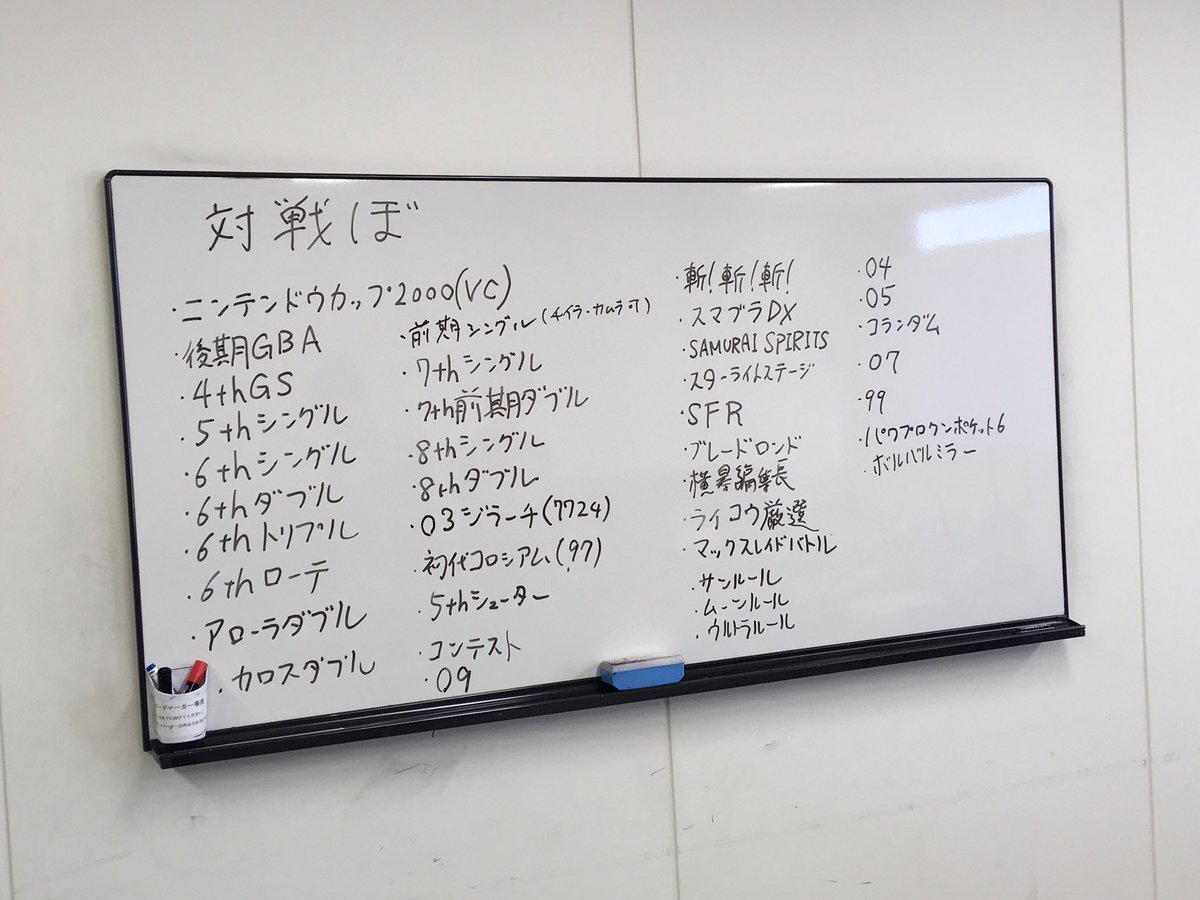 対戦ぼ
・ニンテンドウカップ2000(VC)
・後期GBA
・4thGS
・5thシングル
・6thシングル
・6thダブル
・6thトリプル
・6thローテ
・アローラダブル
・カロスダブル
・前期シングル(チイラ・カムラ可)
・7thシングル
・7th前期ダブル
・8thシングル
・8thダブル
・03ジラーチ(7724)
・初代コロシアム(97)
・5thシューター
・コンテスト
・09
・斬!斬!斬!
・スマブラDX
・SAMURAI SPIRITS
・スターライトステージ
・SFR
・ブレードロンド
・横暴編集長
・ライコウ厳選
・マックスレイドバトル
・サンルール
・ムーンルール
・ウルトラルール
・04
・05
・コランダム
・07
・99
・パワプロクンポケット6
・ボルバルミラー
ードマーカー専用